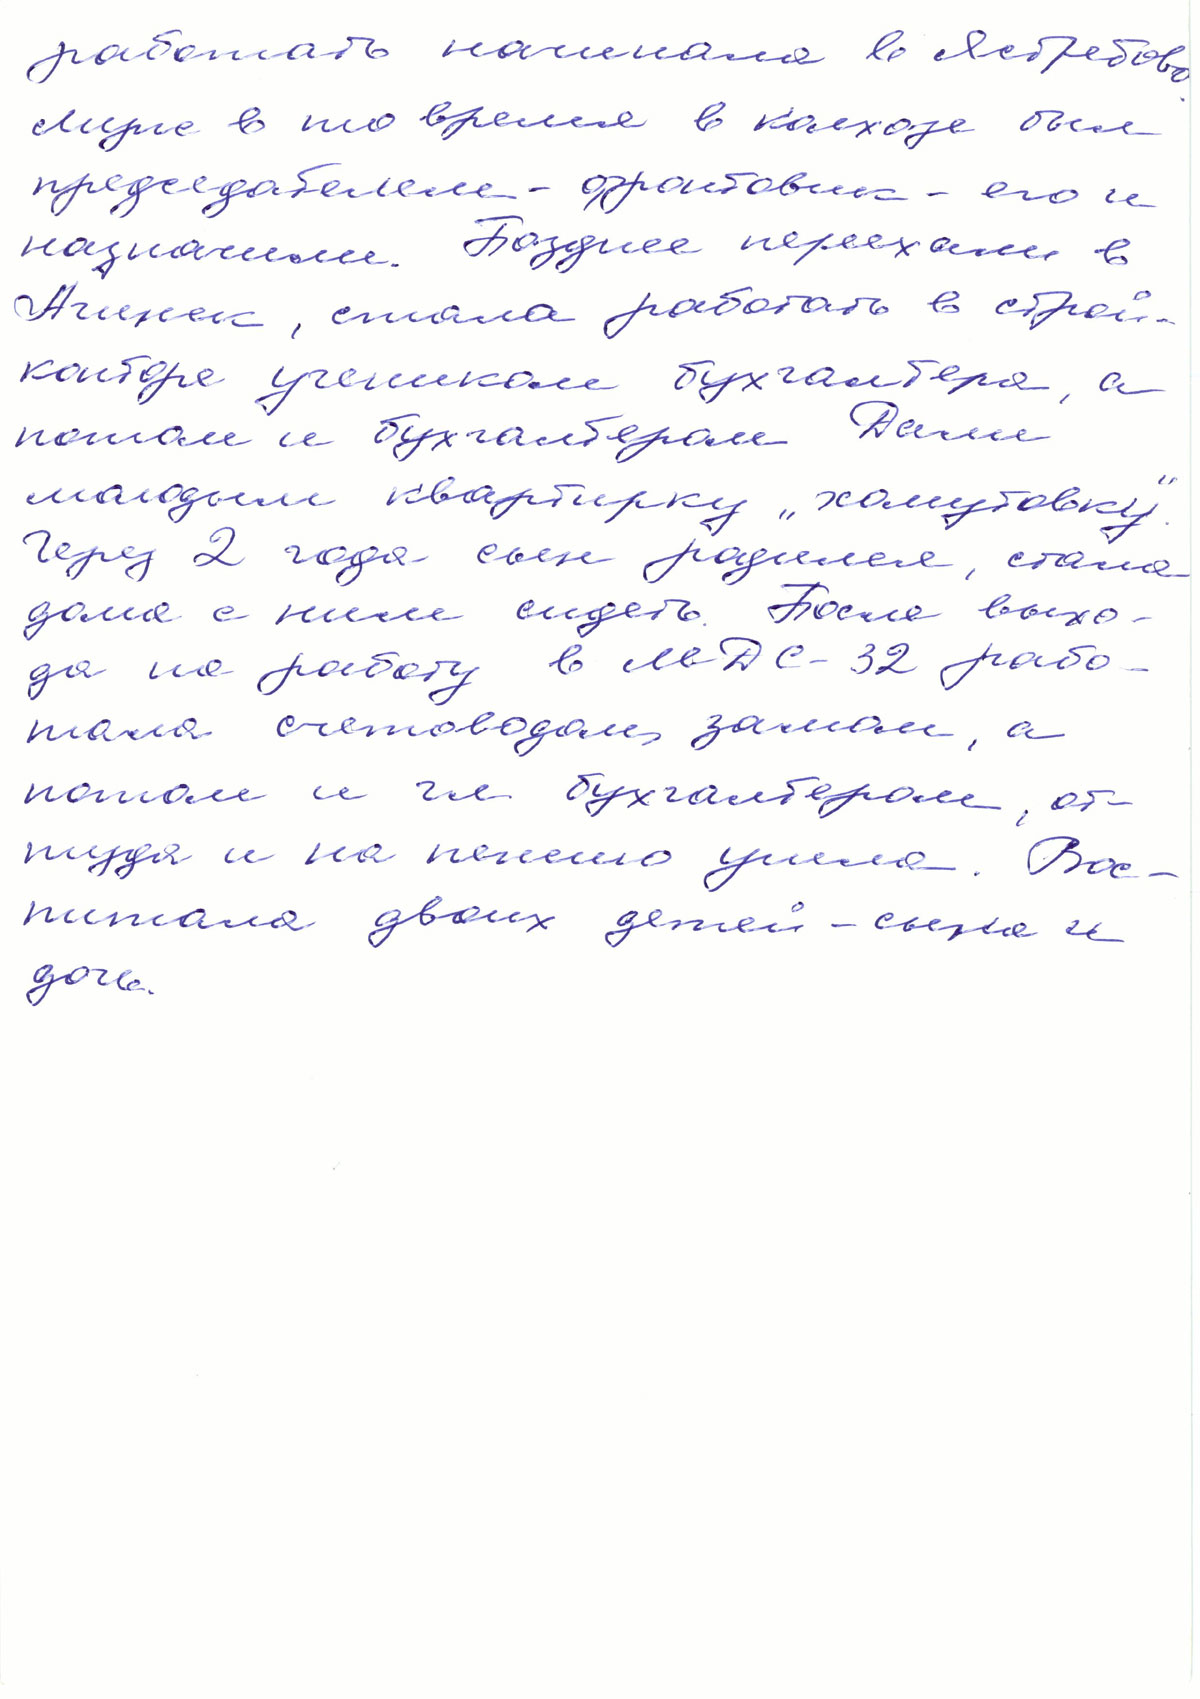 работать начинала в Ястребово.
Муж в то время в колхозе был
председателем - фронтовик - его и
назначили. Позднее переехали в
Ачинск, стала работать в строй-
конторе учеником бухгалтера, а
потом и бухгалтером Дали
молодым квартирку „хомутовку".
Через 2 года сын родился, стала
дома с ним сидеть. После выхо-
да на работу в МДС-32 рабо-
тала счетоводом, замом, а
потом и гл. бухгалтером, от-
туда и на пенсию ушла. Вос-
питала двоих детей - сына и
дочь.